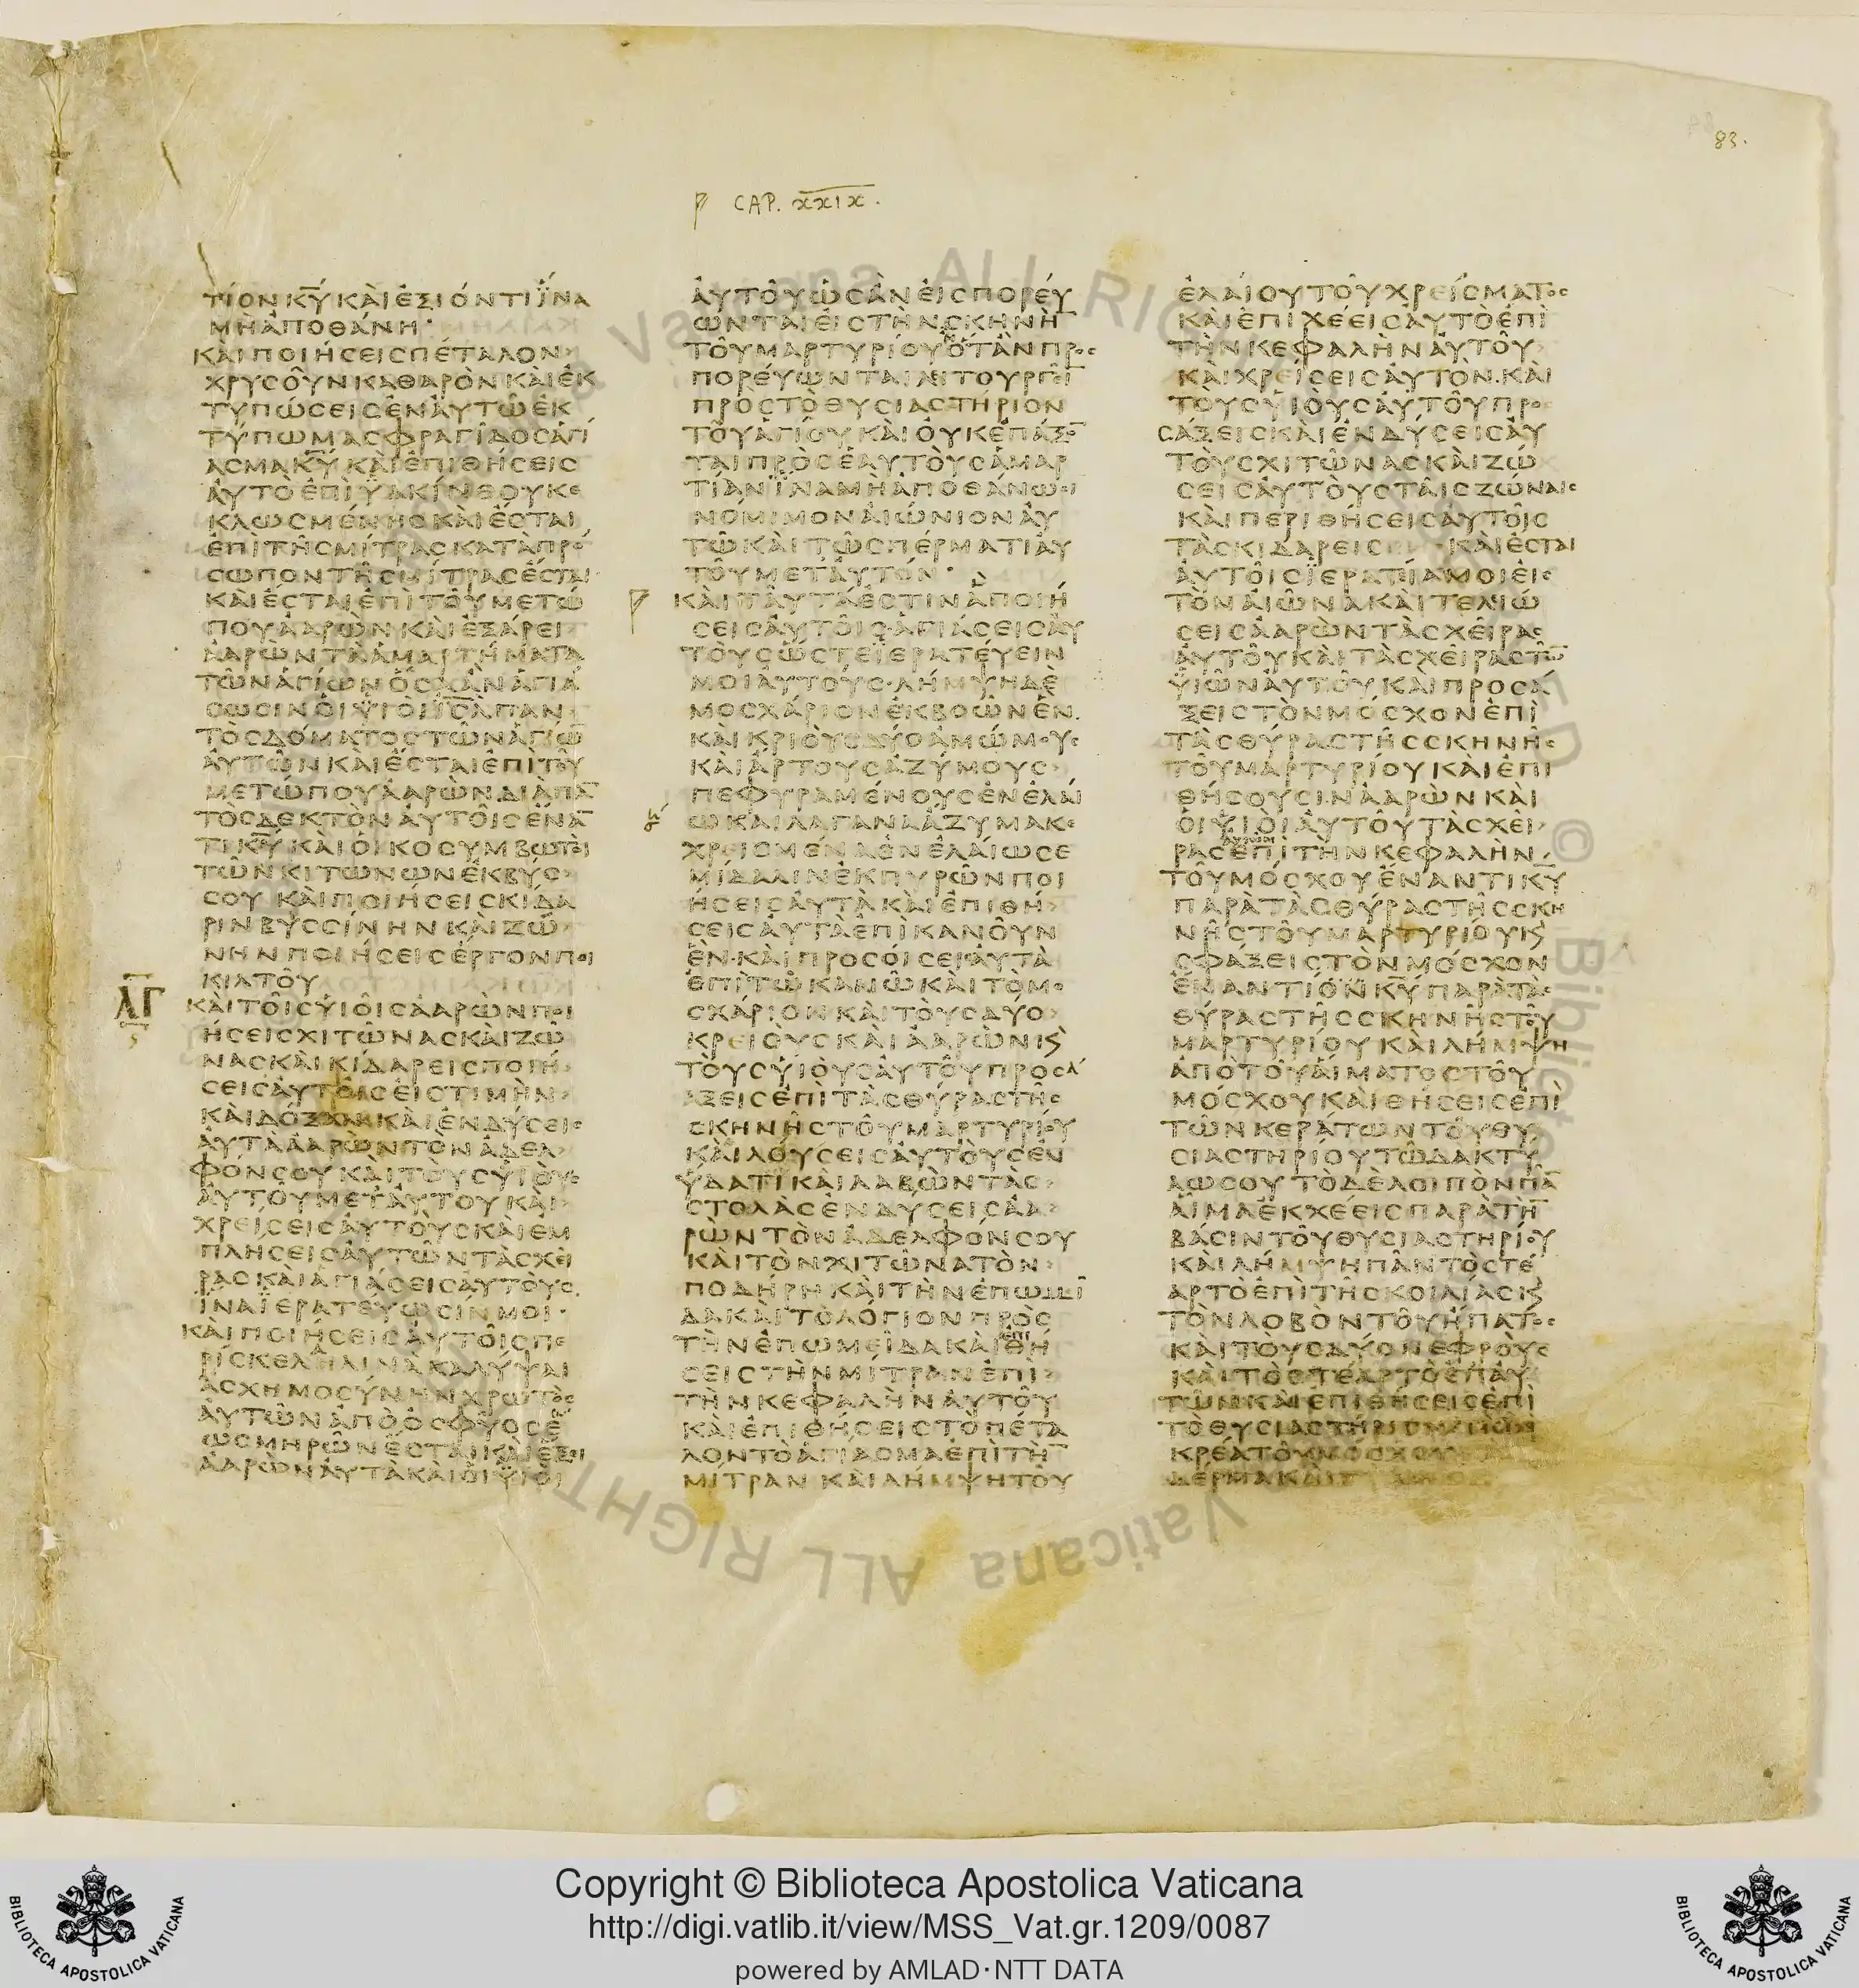 83.
CAP. XXIX.
ΤΙΟΝ ΚΥ ΚΑΙ ΕΞΙΟΝΤΙ ΙΝΑ
ΜΗ ΑΠΟΘΑΝΗ
ΚΑΙ ΠΟΙΗΣΕΙΣ ΠΕΤΑΛΟΝ
ΧΡΥΣΟΥΝ ΚΑΘΑΡΟΝ ΚΑΙ ΕΚ
ΤΥΠΩΣΕΙΣ ΕΝ ΑΥΤΩ ΕΚ
ΤΥΠΩΜΑ ΣΦΡΑΓΙΔΟΣ ΑΓΙ
ΑΣΜΑ ΚΥ ΚΑΙ ΕΠΙΘΗΣΕΙΣ
ΑΥΤΟ ΕΠΙ ΥΑΚΙΝΘΟΥ ΚΕ
ΚΛΩΣΜΕΝΗΣ ΚΑΙ ΕΣΤΑΙ
ΕΠΙ ΤΗΣ ΜΙΤΡΑΣ ΚΑΤΑ ΠΡΟ
ΣΩΠΟΝ ΤΗΣ ΜΙΤΡΑΣ ΕΣΤΑΙ
ΚΑΙ ΕΣΤΑΙ ΕΠΙ ΤΟΥ ΜΕΤΩ
ΠΟΥ ΑΑΡΩΝ ΚΑΙ ΕΞΑΡΕΙ
ΑΑΡΩΝ ΤΑ ΑΜΑΡΤΗΜΑΤΑ
ΤΩΝ ΑΓΙΩΝ ΟΣΑ ΑΝ ΑΓΙΑ
ΣΩΣΙΝ ΟΙ ΥΙΟΙ ΙΣΛ ΠΑΝ
ΤΟΣ ΔΟΜΑΤΟΣ ΤΩΝ ΑΓΙΩ
ΑΥΤΩΝ ΚΑΙ ΕΣΤΑΙ ΕΠΙ ΤΟΥ
ΜΕΤΩΠΟΥ ΑΑΡΩΝ ΔΙΑ ΠΑ
ΤΟΣ ΔΕΚΤΟΝ ΑΥΤΟΙΣ ΕΝΑ
ΤΙ ΚΥ ΚΑΙ ΟΙ ΚΟΣΥΜΒΩΤΟΙ
ΤΩΝ ΚΙΤΩΝΩΝ ΕΚ ΒΥΣ
ΣΟΥ ΚΑΙ ΠΟΙΗΣΕΙΣ ΚΙΔΑ
ΡΙΝ ΒΥΣΣΙΝΗΝ ΚΑΙ ΖΩ
ΝΗΝ ΠΟΙΗΣΕΙΣ ΕΡΓΟΝ ΠΟΙ
ΚΙΛΤΟΥ
ΛΓ
ΚΑΙ ΤΟΙΣ ΥΙΟΙΣ ΑΑΡΩΝ ΠΟΙ
ΗΣΕΙΣ ΧΙΤΩΝΑΣ ΚΑΙ ΖΩ
ΝΑΣ ΚΑΙ ΚΙΔΑΡΕΙΣ ΠΟΙΗ
ΣΕΙΣ ΑΥΤΟΙΣ ΕΙΣ ΤΙΜΗΝ
ΚΑΙ ΔΟΞΑΝ ΚΑΙ ΕΝΔΥΣΕΙΣ
ΑΥΤΑ ΑΑΡΩΝ ΤΟΝ ΑΔΕΛ
ΦΟΝ ΣΟΥ ΚΑΙ ΤΟΥΣ ΥΙΟΥΣ
ΑΥΤΟΥ ΜΕΤ ΑΥΤΟΥ ΚΑΙ
ΧΡΕΙΣΕΙΣ ΑΥΤΟΥΣ ΚΑΙ ΕΜ
ΠΛΗΣΕΙΣ ΑΥΤΩΝ ΤΑΣ ΧΕΙ
ΡΑΣ ΚΑΙ ΑΓΙΑΣΕΙΣ ΑΥΤΟΥΣ
ΙΝΑ ΙΕΡΑΤΕΥΩΣΙΝ ΜΟΙ
ΚΑΙ ΠΟΙΗΣΕΙΣ ΑΥΤΟΙΣ ΠΕ
ΡΙΣΚΕΛΗ ΛΙΝΑ ΚΑΛΥΨΑΙ
ΑΣΧΗΜΟΣΥΝΗΝ ΧΡΩΤΟΣ
ΑΥΤΩΝ ΑΠΟ ΟΣΦΥΟΣ Ε
ΩΣ ΜΗΡΩΝ ΕΣΤΑΙ ΚΑΙ ΕΞΕΙ
ΑΑΡΩΝ ΑΥΤΑ ΚΑΙ ΟΙ ΥΙΟΙ
ΑΥΤΟΥ ΩΣ ΑΝ ΕΙΣΠΟΡΕΥ
ΩΝΤΑΙ ΕΙΣ ΤΗΝ ΣΚΗΝΗ
ΤΟΥ ΜΑΡΤΥΡΙΟΥ Η ΟΤΑΝ ΠΡΟΣ
ΠΟΡΕΥΩΝΤΑΙ ΛΙΤΟΥΡΓΙ
ΠΡΟΣ ΤΟ ΘΥΣΙΑΣΤΗΡΙΟΝ
ΤΟΥ ΑΓΙΟΥ ΚΑΙ ΟΥΚ ΕΠΑΞΟ
ΤΑΙ ΠΡΟΣ ΕΑΥΤΟΥΣ ΑΜΑΡ
ΤΙΑΝ ΙΝΑ ΜΗ ΑΠΟΘΑΝΩΣΙ
ΝΟΜΙΜΟΝ ΑΙΩΝΙΟΝ ΑΥ
ΤΩ ΚΑΙ ΤΩ ΣΠΕΡΜΑΤΙ ΑΥ
ΤΟΥ ΜΕΤ ΑΥΤΟΝ
ΚΑΙ ΤΑΥΤΑ ΕΣΤΙΝ Α ΠΟΙΗ
ΣΕΙΣ ΑΥΤΟΙΣ ΑΓΙΑΣΕΙΣ ΑΥ
ΤΟΥΣ ΩΣΤΕ ΙΕΡΑΤΕΥΕΙΝ
ΜΟΙ ΑΥΤΟΥΣ ΛΗΜΨΗ ΔΕ
ΜΟΣΧΑΡΙΟΝ ΕΚ ΒΟΩΝ ΕΝ
ΚΑΙ ΚΡΙΟΥΣ ΔΥΟ ΑΜΩΜΟΥΣ
ΚΑΙ ΑΡΤΟΥΣ ΑΖΥΜΟΥΣ
ΠΕΦΥΡΑΜΕΝΟΥΣ ΕΝ ΕΛΑΙ
Ω ΚΑΙ ΛΑΓΑΝΑ ΑΖΥΜΑ ΚΕ
ΧΡΕΙΣΜΕΝΑ ΕΝ ΕΛΑΙΩ ΣΕ
ΜΙΔΑΛΙΝ ΕΚ ΠΥΡΩΝ ΠΟΙ
ΗΣΕΙΣ ΑΥΤΑ ΚΑΙ ΕΠΙΘΗ
ΣΕΙΣ ΑΥΤΑ ΕΠΙ ΚΑΝΟΥΝ
ΕΝ ΚΑΙ ΠΡΟΣΟΙΣΕΙΣ ΑΥΤΑ
ΕΠΙ ΤΩ ΚΑΝΩ ΚΑΙ ΤΟ ΜΟ
ΣΧΑΡΙΟΝ ΚΑΙ ΤΟΥΣ ΔΥΟ
ΚΡΕΙΟΥΣ ΚΑΙ ΑΑΡΩΝ Κ
ΤΟΥΣ ΥΙΟΥΣ ΑΥΤΟΥ ΠΡΟΣΑ
ΑΞΕΙΣ ΕΠΙ ΤΑΣ ΘΥΡΑΣ ΤΗΣ
ΣΚΗΝΗΣ ΤΟΥ ΜΑΡΤΥΡΙΟΥ
ΚΑΙ ΛΟΥΣΕΙΣ ΑΥΤΟΥΣ ΕΝ
ΥΔΑΤΙ ΚΑΙ ΛΑΒΩΝ ΤΑΣ
ΣΤΟΛΑΣ ΕΝΔΥΣΕΙΣ ΑΑ
ΡΩΝ ΤΟΝ ΑΔΕΛΦΟΝ ΣΟΥ
ΚΑΙ ΤΟΝ ΧΙΤΩΝΑ ΤΟΝ
ΠΟΔΗΡΗ ΚΑΙ ΤΗΝ ΕΠΩΜΙ
ΔΑ ΚΑΙ ΤΟ ΛΟΓΙΟΝ ΠΡΟΣ
ΤΗΝ ΕΠΩΜΕΙΔΑ ΚΑΙ ΕΠΙΘΗ
ΣΕΙΣ ΤΗΝ ΜΙΤΡΑΝ ΕΠΙ
ΤΗΝ ΚΕΦΑΛΗΝ ΑΥΤΟΥ
ΚΑΙ ΕΠΙΘΗΣΕΙΣ ΤΟ ΠΕΤΑ
ΛΟΝ ΤΟ ΑΓΙΑΣΜΑ ΕΠΙ ΤΗ
ΜΙΤΡΑΝ ΚΑΙ ΛΗΜΨΗ ΤΟΥ
ΕΛΑΙΟΥ ΤΟΥ ΧΡΕΙΣΜΑΤΟΣ
ΚΑΙ ΕΠΙΧΕΕΙΣ ΑΥΤΟ ΕΠΙ
ΤΗΝ ΚΕΦΑΛΗΝ ΑΥΤΟΥ
ΚΑΙ ΧΡΕΙΣΕΙΣ ΑΥΤΟΝ ΚΑΙ
ΤΟΥΣ ΥΙΟΥΣ ΑΥΤΟΥ ΠΡΟ
ΣΑΞΕΙΣ ΚΑΙ ΕΝΔΥΣΕΙΣ ΑΥ
ΤΟΥΣ ΧΙΤΩΝΑΣ ΚΑΙ ΖΩ
ΣΕΙΣ ΑΥΤΟΥΣ ΤΑΙΣ ΖΩΝΑΙΣ
ΚΑΙ ΠΕΡΙΘΗΣΕΙΣ ΑΥΤΟΙΣ
ΤΑΣ ΚΙΔΑΡΕΙΣ ΚΑΙ ΕΣΤΑΙ
ΑΥΤΟΙΣ ΙΕΡΑΤΙΑ ΜΟΙ ΕΙΣ
ΤΟΝ ΑΙΩΝΑ ΚΑΙ ΤΕΛΙΩ
ΣΕΙΣ ΑΑΡΩΝ ΤΑΣ ΧΕΙΡΑΣ
ΑΥΤΟΥ ΚΑΙ ΤΑΣ ΧΕΙΡΑΣ ΤΩ
ΥΙΩΝ ΑΥΤΟΥ ΚΑΙ ΠΡΟΣΑ
ΞΕΙΣ ΤΟΝ ΜΟΣΧΟΝ ΕΠΙ
ΤΑΣ ΘΥΡΑΣ ΤΗΣ ΣΚΗΝΗΣ
ΤΟΥ ΜΑΡΤΥΡΙΟΥ ΚΑΙ ΕΠΙ
ΘΗΣΟΥΣΙΝ ΑΑΡΩΝ ΚΑΙ
ΟΙ ΥΙΟΙ ΑΥΤΟΥ ΤΑΣ ΧΕΙ
ΡΑΣ ΕΠΙ ΤΗΝ ΚΕΦΑΛΗΝ
ΤΟΥ ΜΟΣΧΟΥ ΕΝΑΝΤΙ ΚΥ
ΠΑΡΑ ΤΑΣ ΘΥΡΑΣ ΤΗΣ ΣΚΗ
ΝΗΣ ΤΟΥ ΜΑΡΤΥΡΙΟΥ Κ
ΣΦΑΞΕΙΣ ΤΟΝ ΜΟΣΧΟΝ
ΕΝΑΝΤΙΟΝ ΚΥ ΠΑΡΑ ΤΑΣ
ΘΥΡΑΣ ΤΗΣ ΣΚΗΝΗΣ ΤΟΥ
ΜΑΡΤΥΡΙΟΥ ΚΑΙ ΛΗΜΨΗ
ΑΠΟ ΤΟΥ ΑΙΜΑΤΟΣ ΤΟΥ
ΜΟΣΧΟΥ ΚΑΙ ΘΗΣΕΙΣ ΕΠΙ
ΤΩΝ ΚΕΡΑΤΩΝ ΤΟΥ ΘΥ
ΣΙΑΣΤΗΡΙΟΥ ΤΩ ΔΑΚΤΥ
ΛΩ ΣΟΥ ΤΟ ΔΕ ΛΟΙΠΟΝ ΠΑ
ΑΙΜΑ ΕΚΧΕΕΙΣ ΠΑΡΑ ΤΗ
ΒΑΣΙΝ ΤΟΥ ΘΥΣΙΑΣΤΗΡΙΟΥ
ΚΑΙ ΛΗΜΨΗ ΠΑΝ ΤΟ ΣΤΕ
ΑΡ ΤΟ ΕΠΙ ΤΗΣ ΚΟΙΛΙΑΣ Κ
ΤΟΝ ΛΟΒΟΝ ΤΟΥ ΗΠΑΤΟΣ
ΚΑΙ ΤΟΥΣ ΔΥΟ ΝΕΦΡΟΥΣ
ΚΑΙ ΤΟ ΣΤΕΑΡ ΤΟ ΕΠ ΑΥ
ΤΩΝ ΚΑΙ ΕΠΙΘΗΣΕΙΣ ΕΠΙ
ΤΟ ΘΥΣΙΑΣΤΗΡΙΟΝ
ΚΡΕΑ ΤΟΥ ΜΟΣΧΟΥ
ΔΕΡΜΑ ΚΑΙ
Copyright © Biblioteca Apostolica Vaticana
http://digi.vatlib.it/view/MSS_Vat.gr.1209/0087
powered by AMLAD·NTT DATA
BIBLIOTECA APOSTOLICA VATICANA
BIBLIOTECA APOSTOLICA VATICANA